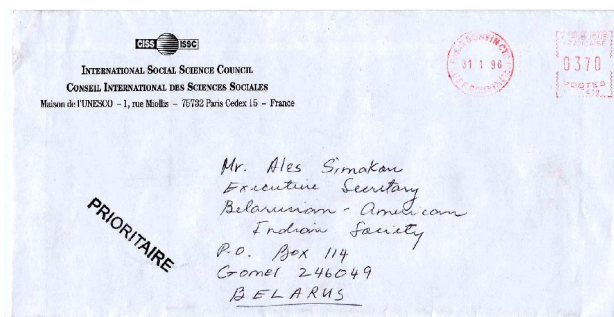 CISS ISSC
INTERNATIONAL SOCIAL SCIENCE COUNCIL
CONSEIL INTERNATIONAL DES SCIENCES SOCIALES
Maison de l'UNESCO – 1, rue Miollis – 75732 Paris Cedex 15 – France
31 1 96
0370
POSTES
PRIORITAIRE
Mr. Ales Simakou
Executive Secretary
Belarusian - American
Indian Society
P.O. Box 114
Gomel 246049
BELARUS